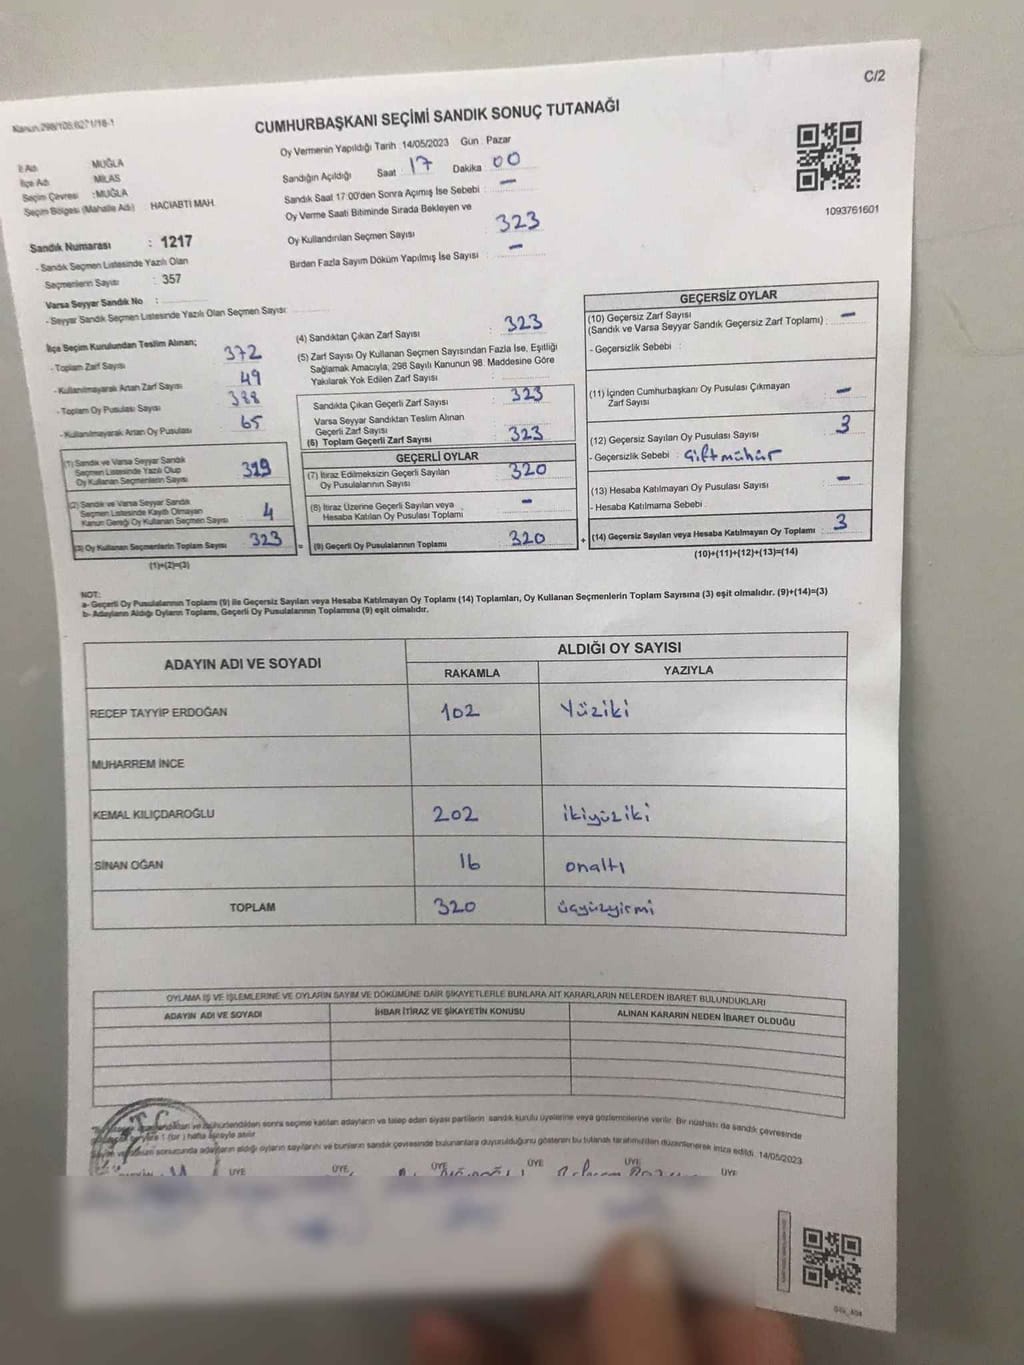 C/2
Kanun:298/108;6271/18-1
CUMHURBAŞKANI SEÇİMİ SANDIK SONUÇ TUTANAĞI
İl Adı : MUĞLA
İlçe Adı : MİLAS
Seçim Çevresi : MUĞLA
Seçim Bölgesi (Mahalle Adı) : HACIABTİ MAH.
Sandık Numarası : 1217
- Sandık Seçmen Listesinde Yazılı Olan
Seçmenlerin Sayısı : 357
Varsa Seyyar Sandık No :
- Seyyar Sandık Seçmen Listesinde Yazılı Olan Seçmen Sayısı:
Oy Vermenin Yapıldığı Tarih : 14/05/2023 Gün : Pazar
Sandığın Açıldığı Saat : 17 Dakika : 00
Sandık Saat 17:00'den Sonra Açımış İse Sebebi : –
Oy Verme Saati Bitiminde Sırada Bekleyen ve
Oy Kullandırılan Seçmen Sayısı : 323
Birden Fazla Sayım Döküm Yapılmış İse Sayısı : –
1093761601
İlçe Seçim Kurulundan Teslim Alınan;
- Toplam Zarf Sayısı : 372
- Kullanılmayarak Artan Zarf Sayısı : 49
- Toplam Oy Pusulası Sayısı : 388
- Kullanılmayarak Artan Oy Pusulası : 65
(1) Sandık ve Varsa Seyyar Sandık
Seçmen Listesinde Yazılı Olup
Oy Kullanan Seçmenlerin Sayısı : 319
(2) Sandık ve Varsa Seyyar Sandık
Seçmen Listesinde Kayıtlı Olmayan
Kanun Gereği Oy Kullanan Seçmen Sayısı : 4
(3) Oy Kullanan Seçmenlerin Toplam Sayısı : 323
(1)+(2)=(3)
(4) Sandıktan Çıkan Zarf Sayısı : 323
(5) Zarf Sayısı Oy Kullanan Seçmen Sayısından Fazla İse, Eşitliği
Sağlamak Amacıyla, 298 Sayılı Kanunun 98. Maddesine Göre
Yakılarak Yok Edilen Zarf Sayısı :
Sandıkta Çıkan Geçerli Zarf Sayısı : 323
Varsa Seyyar Sandıktan Teslim Alınan
Geçerli Zarf Sayısı :
(6) Toplam Geçerli Zarf Sayısı : 323
GEÇERLİ OYLAR
(7) İtiraz Edilmeksizin Geçerli Sayılan
Oy Pusulalarının Sayısı : 320
(8) İtiraz Üzerine Geçerli Sayılan veya
Hesaba Katılan Oy Pusulası Toplamı : –
= (9) Geçerli Oy Pusulalarının Toplamı : 320
GEÇERSİZ OYLAR
(10) Geçersiz Zarf Sayısı
(Sandık ve Varsa Seyyar Sandık Geçersiz Zarf Toplamı) : –
- Geçersizlik Sebebi :
(11) İçinden Cumhurbaşkanı Oy Pusulası Çıkmayan
Zarf Sayısı : –
(12) Geçersiz Sayılan Oy Pusulası Sayısı : 3
- Geçersizlik Sebebi : Çiftmühür
(13) Hesaba Katılmayan Oy Pusulası Sayısı : –
- Hesaba Katılmama Sebebi :
+ (14) Geçersiz Sayılan veya Hesaba Katılmayan Oy Toplamı : 3
(10)+(11)+(12)+(13)=(14)
NOT:
a- Geçerli Oy Pusulalarının Toplamı (9) ile Geçersiz Sayılan veya Hesaba Katılmayan Oy Toplamı (14) Toplamları, Oy Kullanan Seçmenlerin Toplam Sayısına (3) eşit olmalıdır. (9)+(14)=(3)
b- Adayların Aldığı Oyların Toplamı, Geçerli Oy Pusulalarının Toplamına (9) eşit olmalıdır.
ADAYIN ADI VE SOYADI
ALDIĞI OY SAYISI
RAKAMLA YAZIYLA
RECEP TAYYİP ERDOĞAN 102 Yüziki
MUHARREM İNCE
KEMAL KILIÇDAROĞLU 202 ikiyüziki
SİNAN OĞAN 16 onaltı
TOPLAM 320 üçyüzyirmi
OYLAMA İŞ VE İŞLEMLERİNE VE OYLARIN SAYIM VE DÖKÜMÜNE DAİR ŞİKAYETLERLE BUNLARA AİT KARARLARIN NELERDEN İBARET BULUNDUKLARI
ADAYIN ADI VE SOYADI İHBAR İTİRAZ VE ŞİKAYETİN KONUSU ALINAN KARARIN NEDEN İBARET OLDUĞU
sonra seçime katılan adayların ve talep eden siyasi partilerin sandık kurulu üyelerine veya gözlemcilerine verilir. Bir nüshası da sandık çevresinde
1 (bir) hafta süreyle asılır.
sonucunda adayların aldığı oyların sayılarını ve bunların sandık çevresinde bulunanlara duyurulduğunu gösteren bu tutanak tarafımızdan düzenlenerek imza edildi. 14/05/2023
ÜYE ÜYE ÜYE ÜYE ÜYE ÜYE